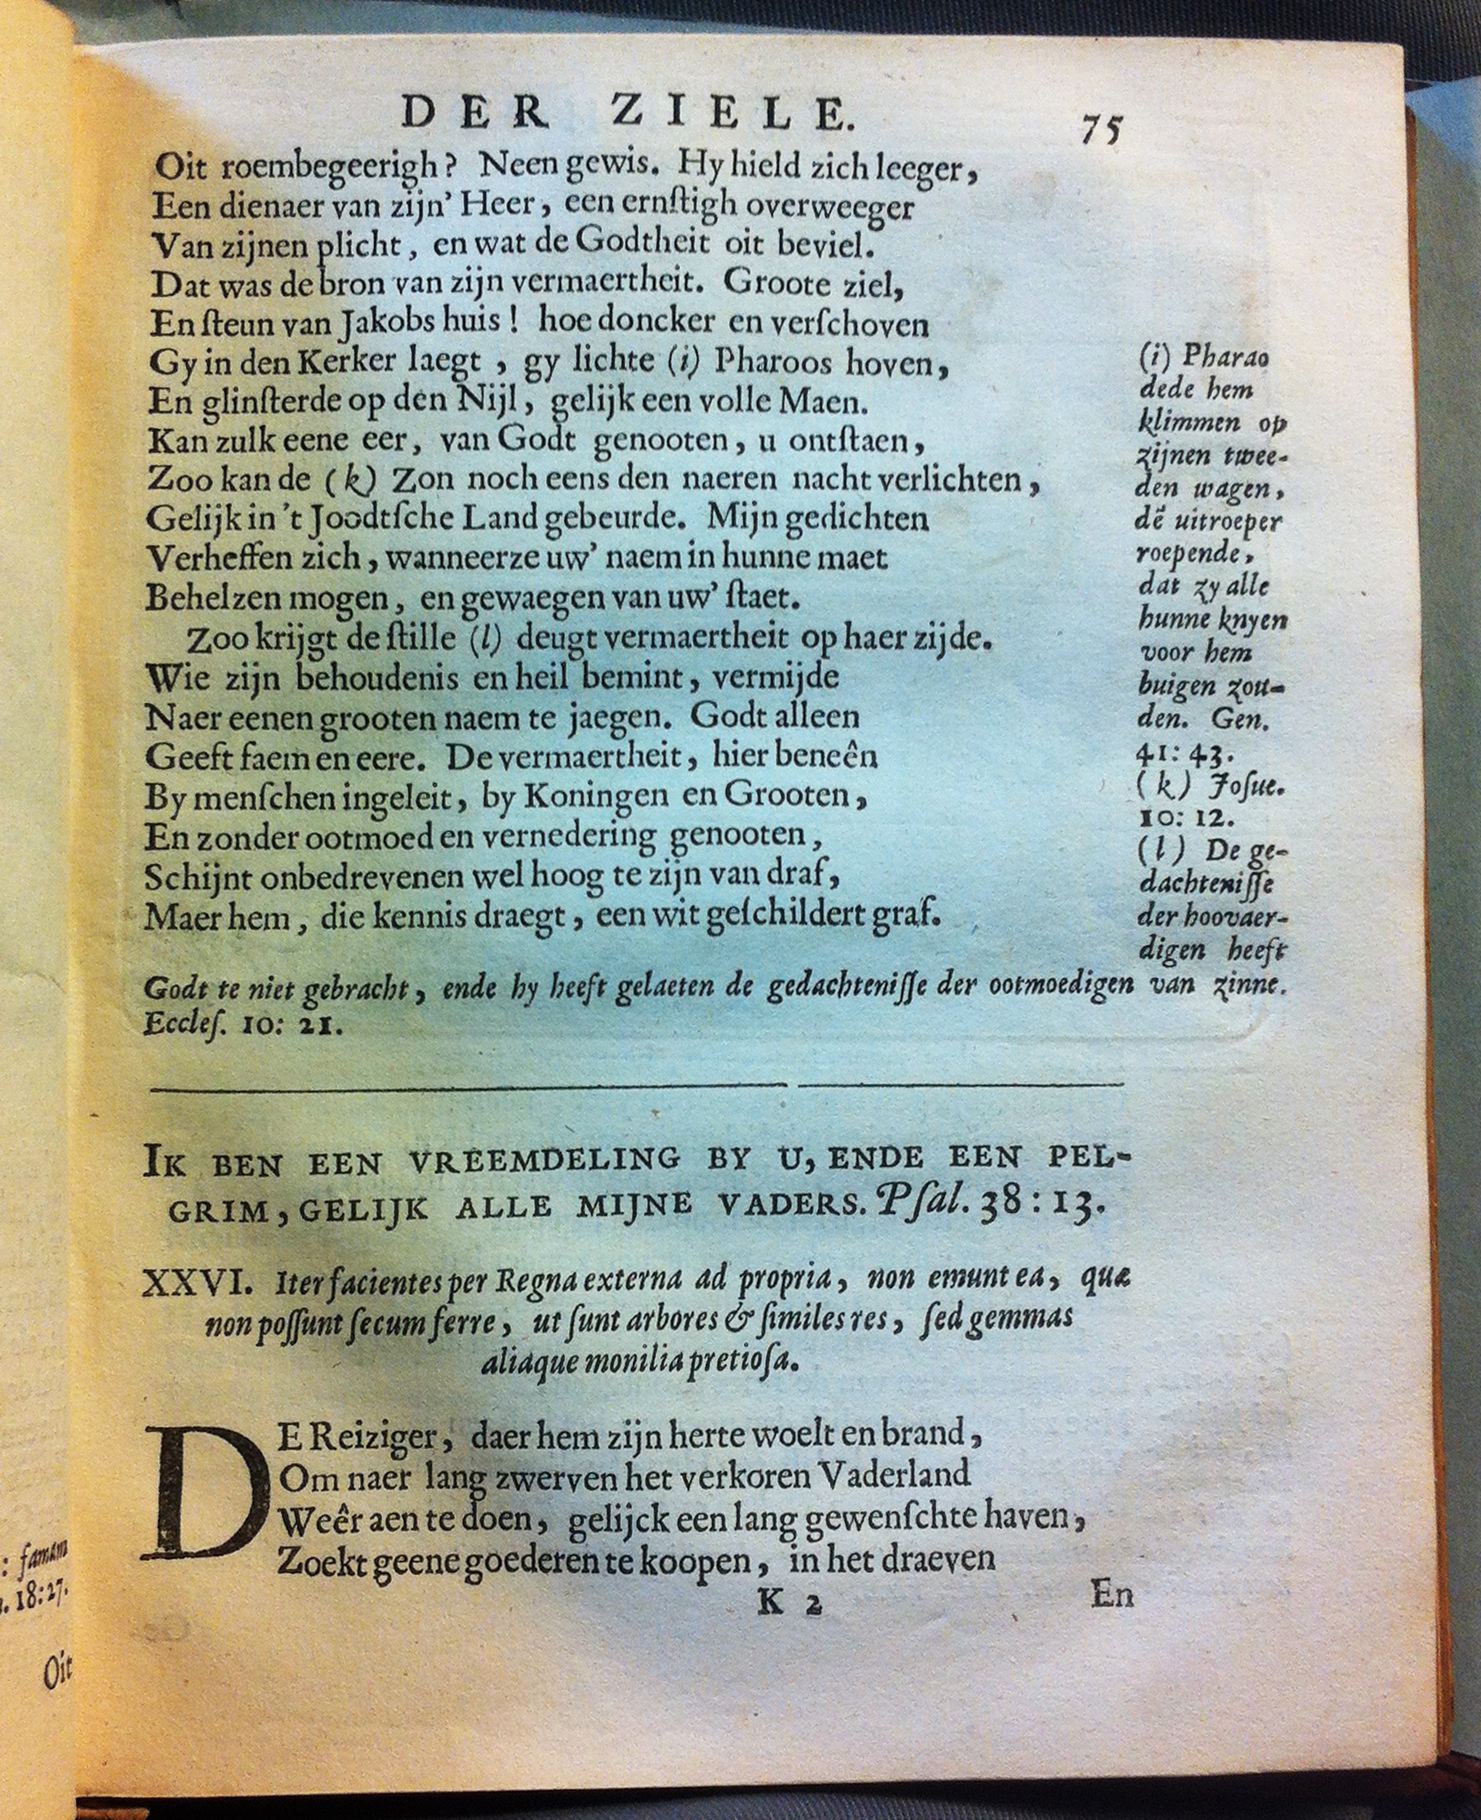 DER ZIELE. 75
Oit roembegeerigh? Neen gewis. Hy hield zich leeger,
Een dienaer van zijn' Heer, een ernſtigh overweeger
Van zijnen plicht, en wat de Godtheit oit beviel.
Dat was de bron van zijn vermaertheit. Groote ziel,
En ſteun van Jakobs huis! hoe doncker en verſchoven
Gy in den Kerker laegt, gy lichte (i) Pharoos hoven,
En glinſterde op den Nijl, gelijk een volle Maen.
Kan zulk eene eer, van Godt genooten, u ontſtaen,
Zoo kan de (k) Zon noch eens den naeren nacht verlichten,
Gelijk in 't Joodtſche Land gebeurde. Mijn gedichten
Verheffen zich, wanneerze uw' naem in hunne maet
Behelzen mogen, en gewaegen van uw' ſtaet.
Zoo krijgt de ſtille (l) deugt vermaertheit op haer zijde.
Wie zijn behoudenis en heil bemint, vermijde
Naer eenen grooten naem te jaegen. Godt alleen
Geeft faem en eere. De vermaertheit, hier beneên
By menſchen ingeleit, by Koningen en Grooten,
En zonder ootmoed en vernedering genooten,
Schijnt onbedrevenen wel hoog te zijn van draf,
Maer hem, die kennis draegt, een wit geſchildert graf.
(i) Pharao
dede hem
klimmen op
zijnen twee-
den wagen,
dē uitroeper
roepende,
dat zy alle
hunne knyen
voor hem
buigen zou-
den. Gen.
41: 43.
(k) Joſue.
10: 12.
(l) De ge-
dachteniſſe
der hoovaer-
digen heeft
Godt te niet gebracht, ende hy heeft gelaeten de gedachteniſſe der ootmoedigen van zinne.
Eccleſ. 10: 21.
IK BEN EEN VREEMDELING BY U, ENDE EEN PEL-
GRIM, GELIJK ALLE MIJNE VADERS. Pſal. 38: 13.
XXVI. Iter facientes per Regna externa ad propria, non emunt ea, quæ
non poſſunt ſecum ferre, ut ſunt arbores & ſimiles res, ſed gemmas
aliaque monilia pretioſa.
DE Reiziger, daer hem zijn herte woelt en brand,
Om naer lang zwerven het verkoren Vaderland
Weêr aen te doen, gelijck een lang gewenſchte haven,
Zoekt geene goederen te koopen, in het draeven
K 2 En
: famam
18:27.
Oit